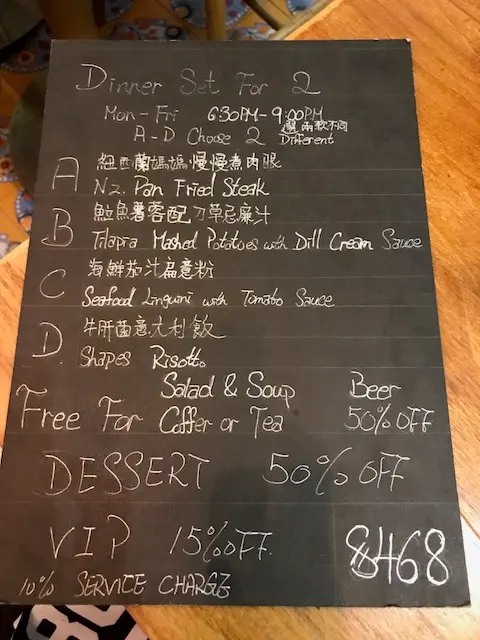 Dinner Set For 2
Mon - Fri 6:30PM - 9:00PM
選兩款不同
A - D Choose 2 Different
A 紐西蘭媽媽慢慢煮肉眼
Nz. Pan Fried Steak
B 鯰魚薯蓉配刀草忌廉汁
Tilapia Mashed Potatoes with Dill Cream Sauce
C 海鮮茄汁扁意粉
Seafood Linguini with Tomato Sauce
D. 牛肝菌意大利飯
Shapes Risotto
Salad & Soup Beer
Free For Coffer or Tea 50% OFF
DESSERT 50% OFF
VIP 15% OFF $468
10% SERVICE CHARGE